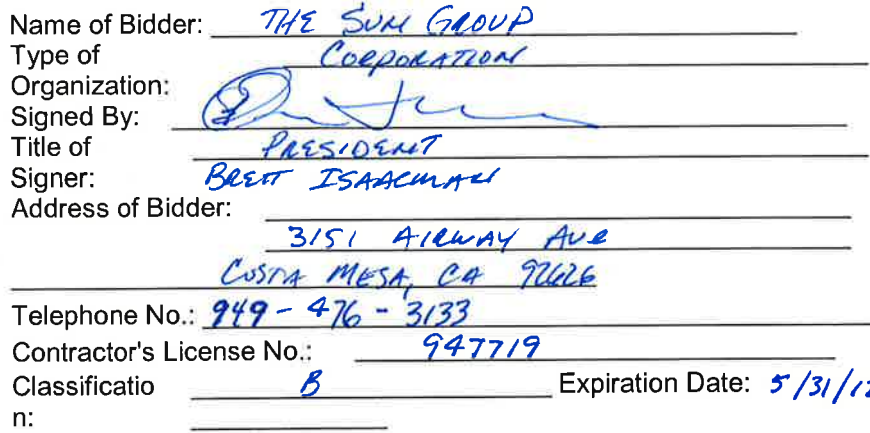 Name of Bidder: THE SUM GROUP
Type of CORPORATION
Organization:
Signed By:
Title of PRESIDENT
Signer: BRETT ISAACMAN
Address of Bidder:
3151 AIRWAY AVE
COSTA MESA, CA 92626
Telephone No.: 949-476-3133
Contractor's License No.: 947719
Classificatio B Expiration Date: 5/31/12
n: